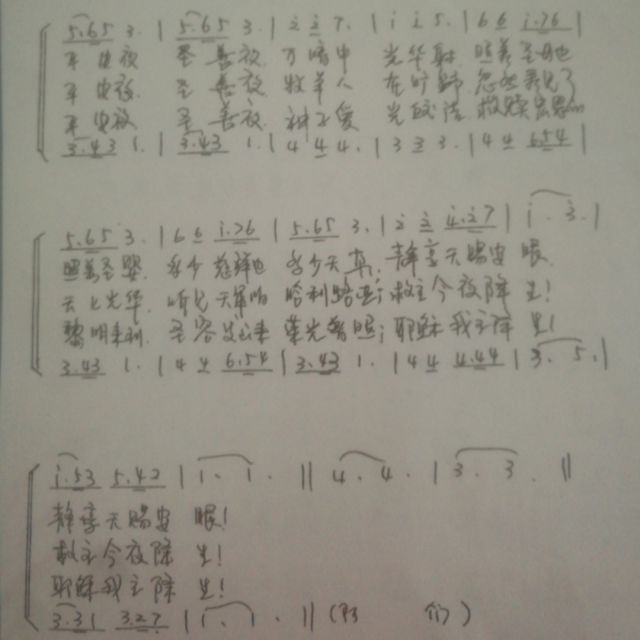 5.65 3. | 5.65 3. | 2̇ 2̇ 7. | i i 5. | 6 6 i.76 |
平安夜 圣善夜 万暗中 光华射 照着圣母也
平安夜 圣善夜 牧羊人 在旷野 忽然看见了
平安夜 圣善夜 神子爱 光皎洁 救赎宏恩的
3.43 1. | 3.43 1. | 4 4 4. | 3 3 3. | 4 4 6.54 |
5.65 3. | 6 6 i.76 | 5.65 3. | 2̇ 2̇ 4̇.2̇7 | i. 3̇. |
照着圣婴 多少慈祥也 多少天真 静享天赐安 眠
天上光华 听见天军唱 哈利路亚 救主今夜降 生!
黎明来到 圣容发出来 荣光普照 耶稣我主降 生!
3.43 1. | 4 4 6.54 | 3.43 1. | 4 4 4.44 | 3. 5. |
i.53 5.42 | 1. 1. || 4. 4. | 3. 3. ||
静享天赐安 眠!
救主今夜降 生!
耶稣我主降 生!
3.31 3.27 | 1. 1. || (阿 们)